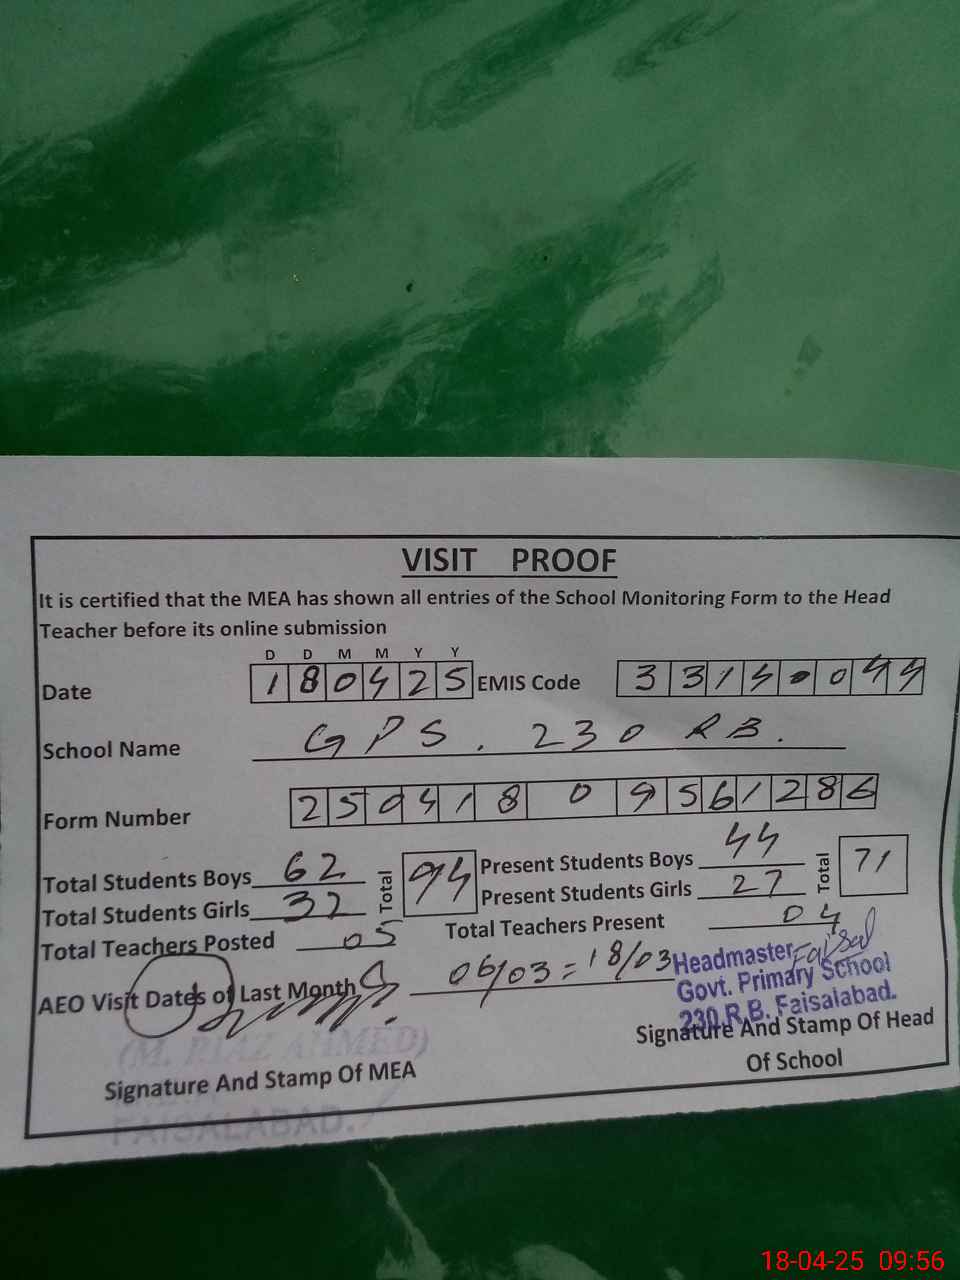 VISIT PROOF
It is certified that the MEA has shown all entries of the School Monitoring Form to the Head
Teacher before its online submission
D D M M Y Y
Date 180425 EMIS Code 33140044
School Name GPS. 230 RB.
Form Number 25041809561286
Total Students Boys 62 Total 94 Present Students Boys 44 Total 71
Total Students Girls 32 Present Students Girls 27
Total Teachers Posted 05 Total Teachers Present 04
AEO Visit Dates of Last Month 06/03 = 18/03
Faisal
Headmaster
Govt. Primary School
230 R.B. Faisalabad.
Signature And Stamp Of Head
Of School
(M. RIAZ AHMED)
Signature And Stamp Of MEA
FAISALABAD.
18-04-25 09:56